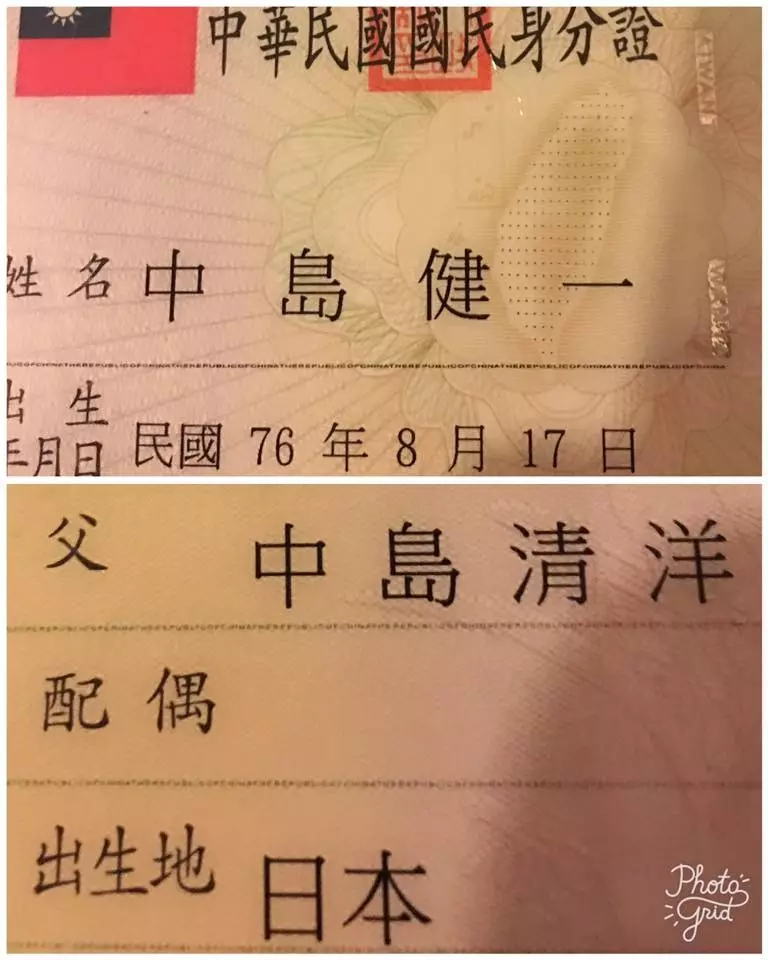 中華民國國民身分證
姓名 中島健一
出生
年月日 民國 76 年 8 月 17 日
父 中島清洋
配偶
出生地 日本
Photo
Grid